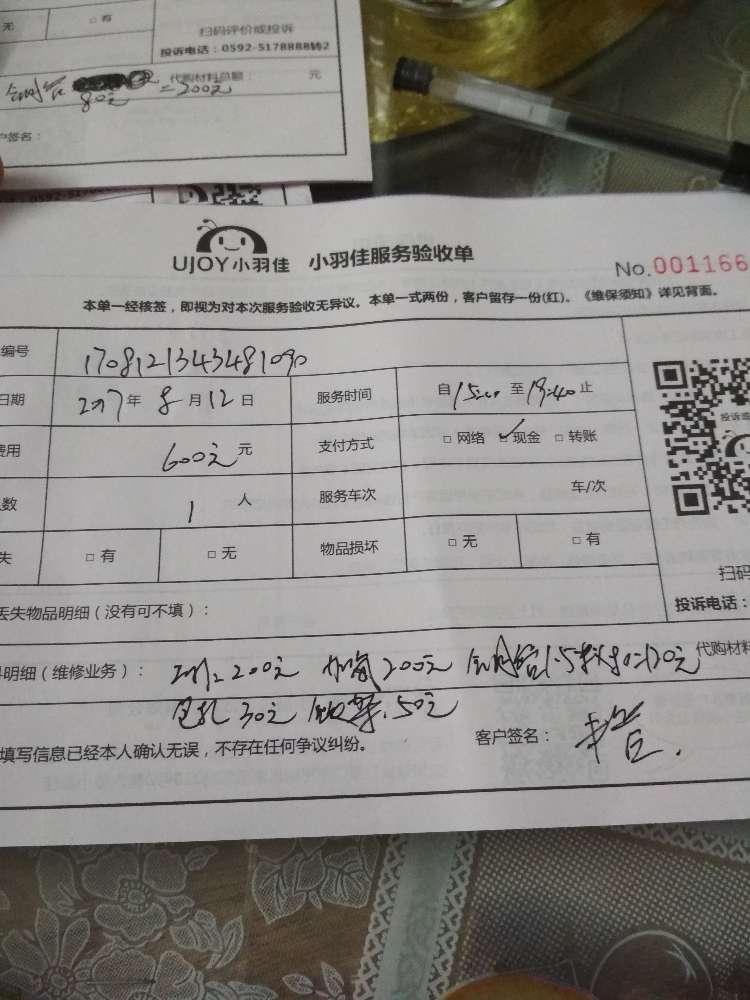 无 □ 有
扫码评价或投诉
投诉电话：0592-5178888转2
代购材料总额： 元
80元 =200元
户签名：
UJOY小羽佳 小羽佳服务验收单
No.001166
本单一经核签，即视为对本次服务验收无异议。本单一式两份，客户留存一份(红)。《维保须知》详见背面。
编号 1708121343481090
日期 2017年 8 月 12 日 服务时间 自 15:00 至 19:40 止
费用 600元 元 支付方式 □ 网络 □ 现金 □ 转账
数 1 人 服务车次 车/次
失 □ 有 □ 无 物品损坏 □ 无 □ 有
投诉或
扫码
投诉电话：
丢失物品明细（没有可不填）：
明细（维修业务）： 200元 加氟200元 120元 代购材料
30元 50元
填写信息已经本人确认无误，不存在任何争议纠纷。 客户签名：